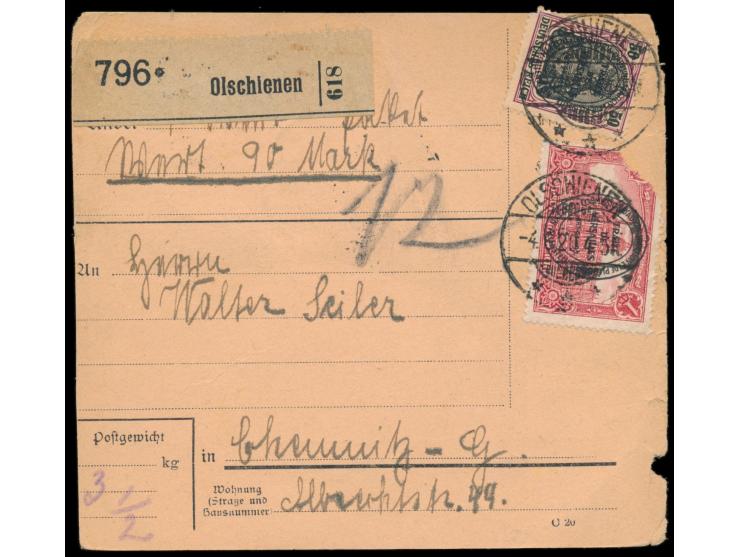 796
Olschienen
618
Paket
Wert 90 Mark
12
An
Herrn
Walter Seiler
Postgewicht
kg
3 1/2
in
Chemnitz - G.
Wohnung
(Straße und
Hausnummer)
Albrechtstr. 44.
C 20
OLSCHIENEN